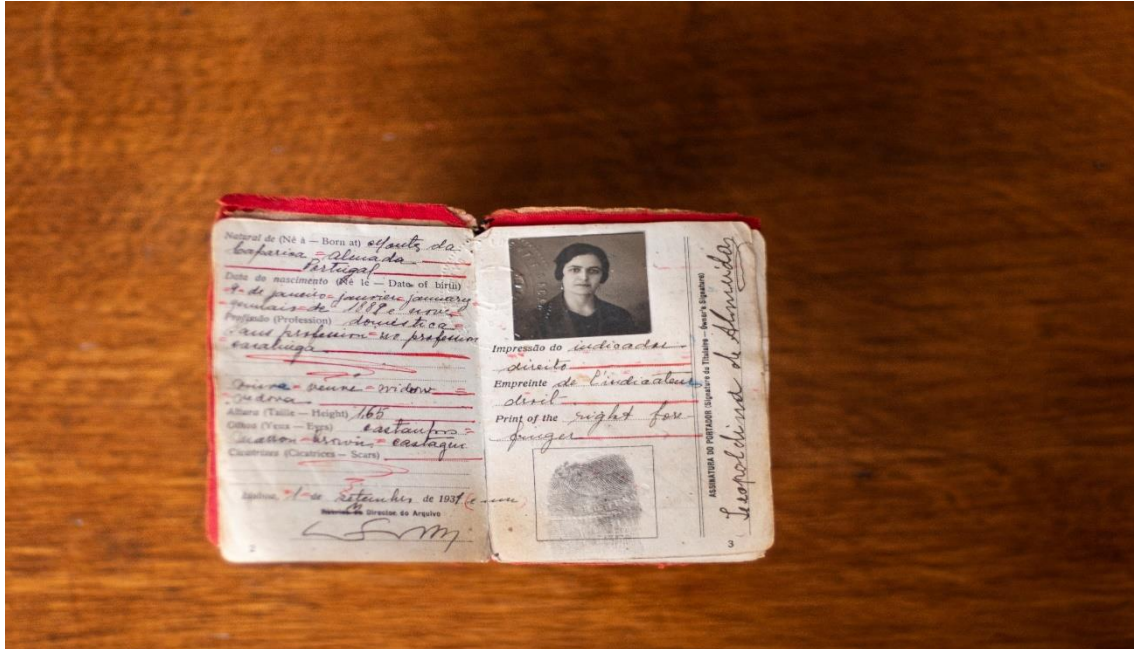 Natural de (Né à — Born at) Monte da
Caparica = Almada
Portugal
Data do nascimento (Né le — Date of birth)
de janeiro = janvier = january
gennaio = de 1889 e nove
Profissão (Profession) doméstica =
sans profession = no profession
casalinga
viuva = veuve = widow =
vedova
Altura (Taille — Height) 1,65
Olhos (Yeux — Eyes) castanhos =
marron = brown = castagni
Cicatrizes (Cicatrices — Scars)
Lisboa, 1 de setembro de 1931 (e um
Director do Arquivo
2
Impressão do indicador
direito
Empreinte de l'indicateur
droit
Print of the right fore
finger
ASSINATURA DO PORTADOR (Signature du Titulaire — Owner's Signature)
Leopoldina de Almeida
3